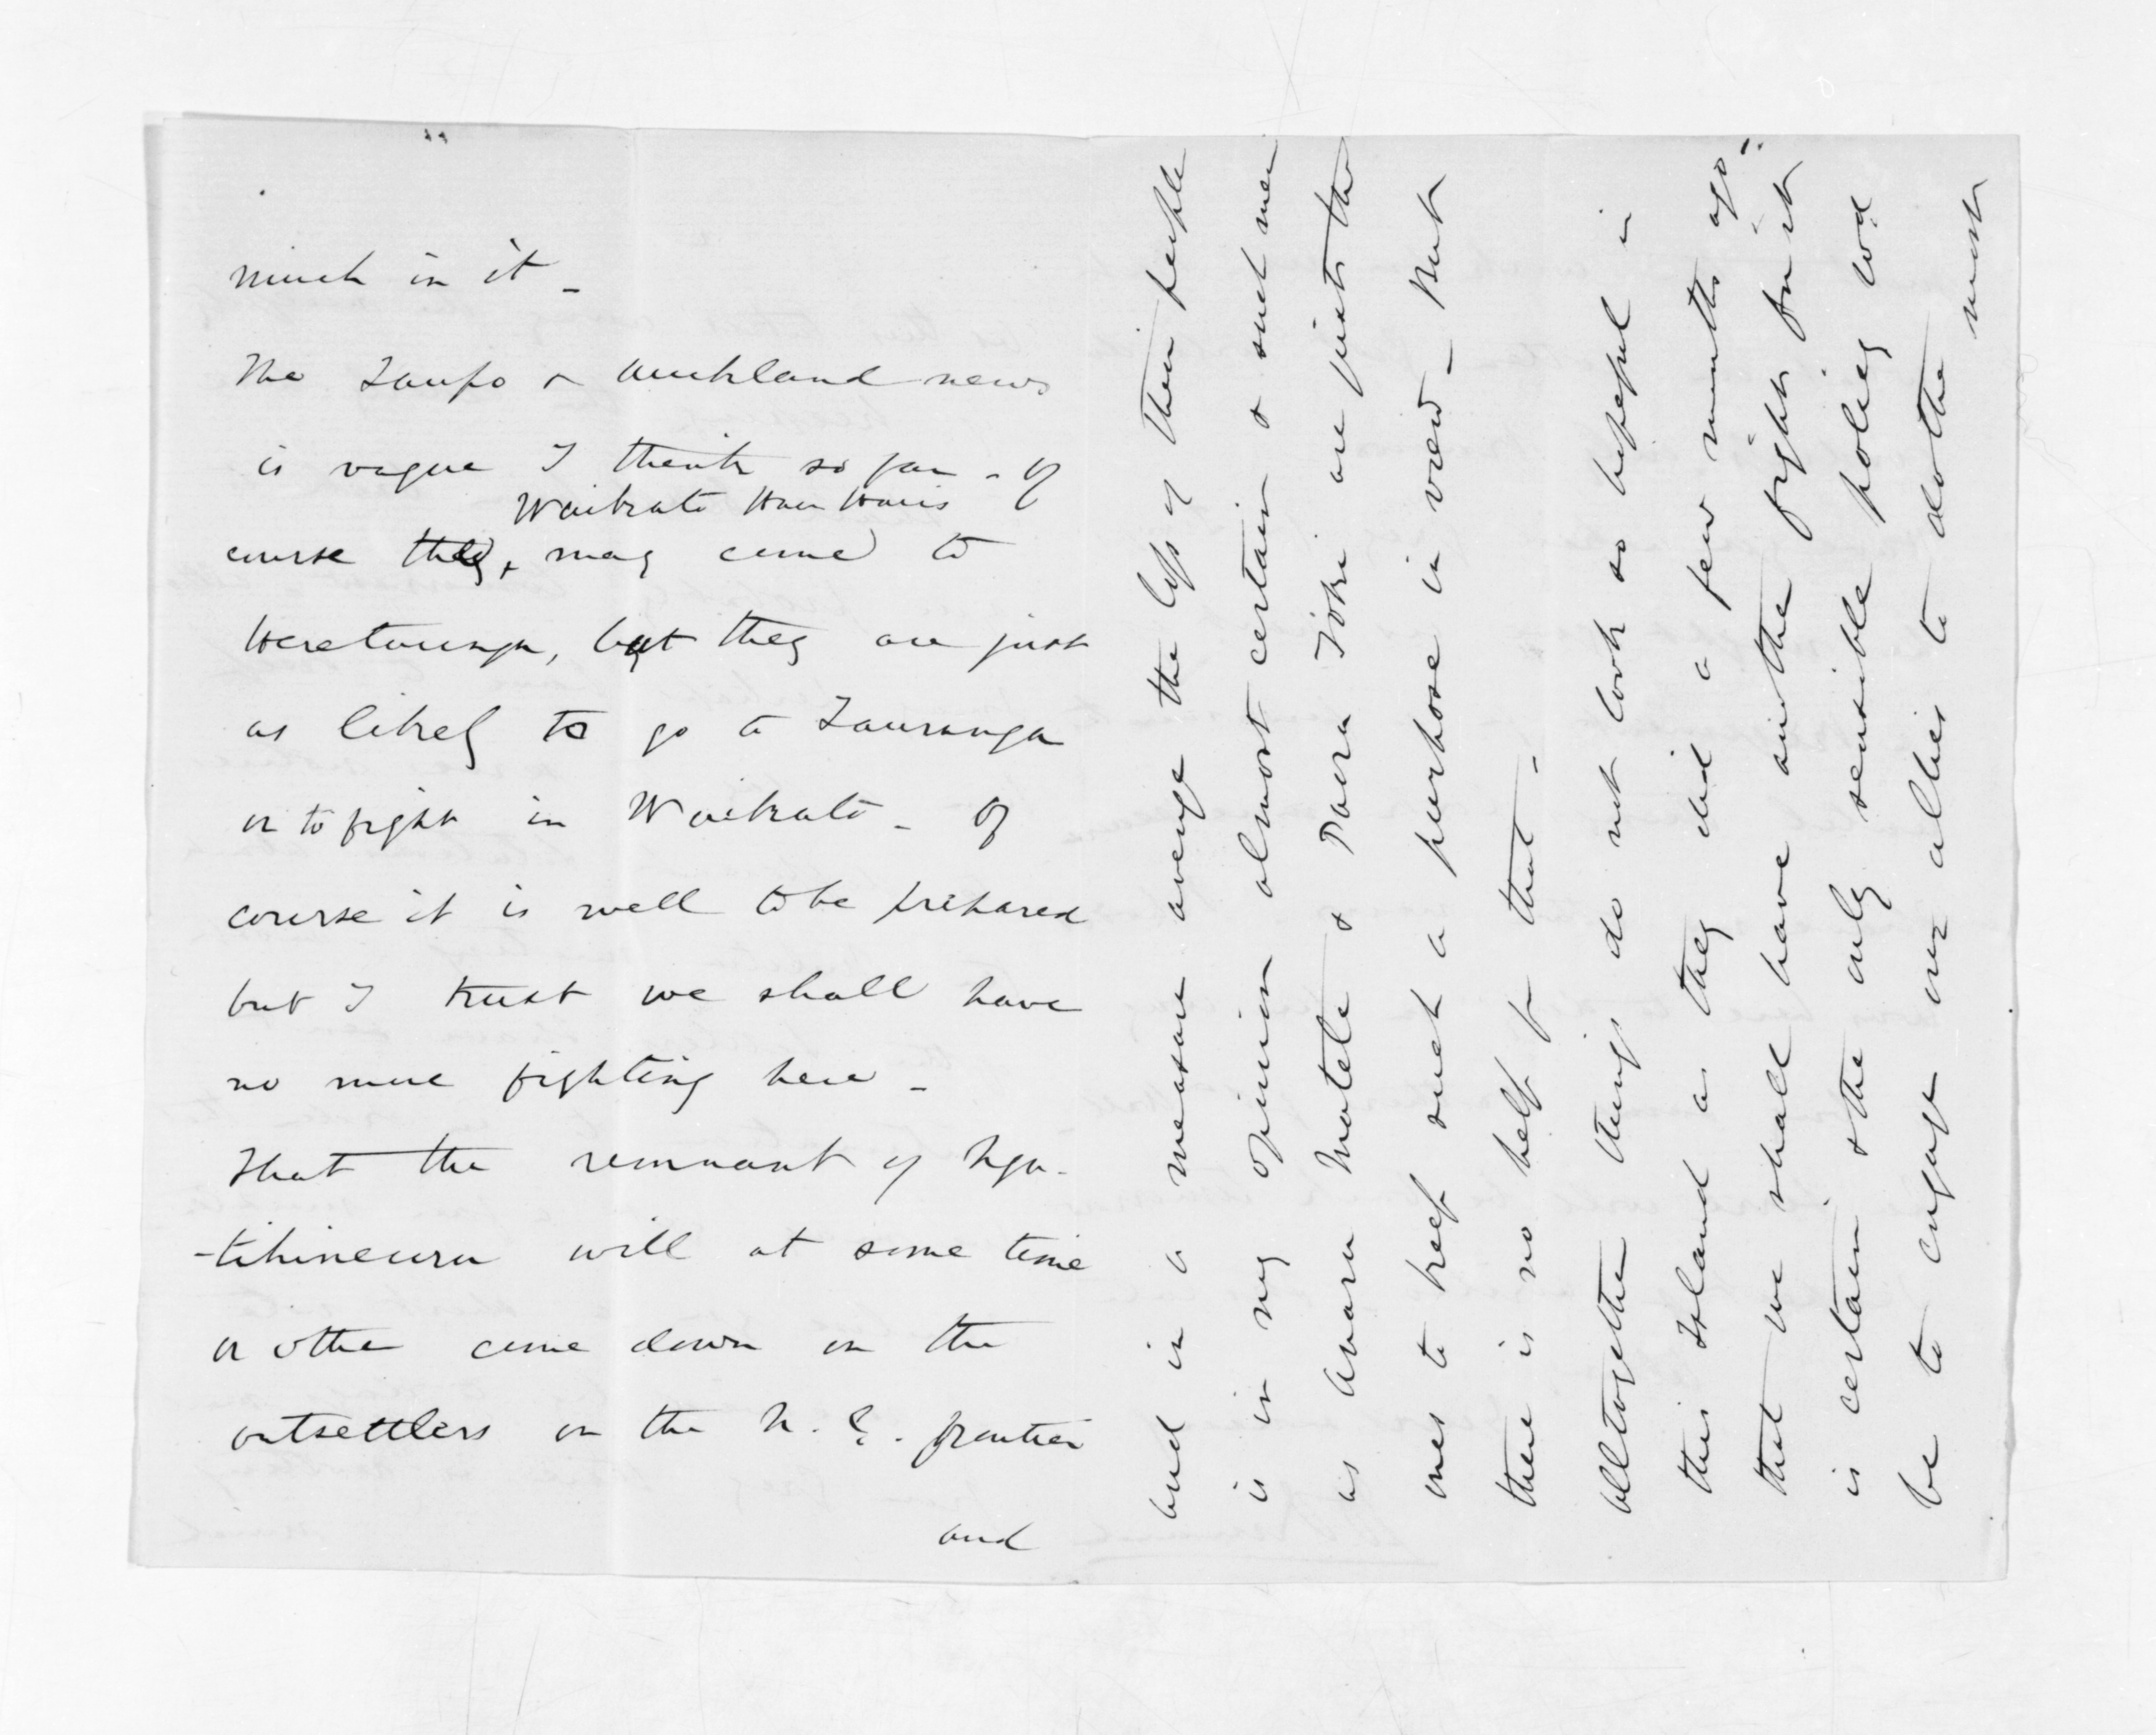 much in it –
The Taupo & Auckland news
is vague I think so far – of
Waikato Hau Haus
course they, may come to
Heretaunga, but they are just
as likely to go to Tauranga
or to fight in Waikato – Of
course it is well to be prepared
but I trust we shall have
no more fighting here –
That the remnant of Nga-
-tihineuru will at some time
or other come down on the
outsettlers on the N. E. frontier
and
and in a measure avenge the loss of their people
is in my opinion almost certain & such men
as Anaru Matete & Paora Toki are just the
ones to keep such a purpose in view – But
there is no help for that –
altogether things do not look so hopeful in
this Island as they did a few months ago –
that we shall have another fight for it
is certain & the only sensible policy wod
be to engage our allies to do the
most